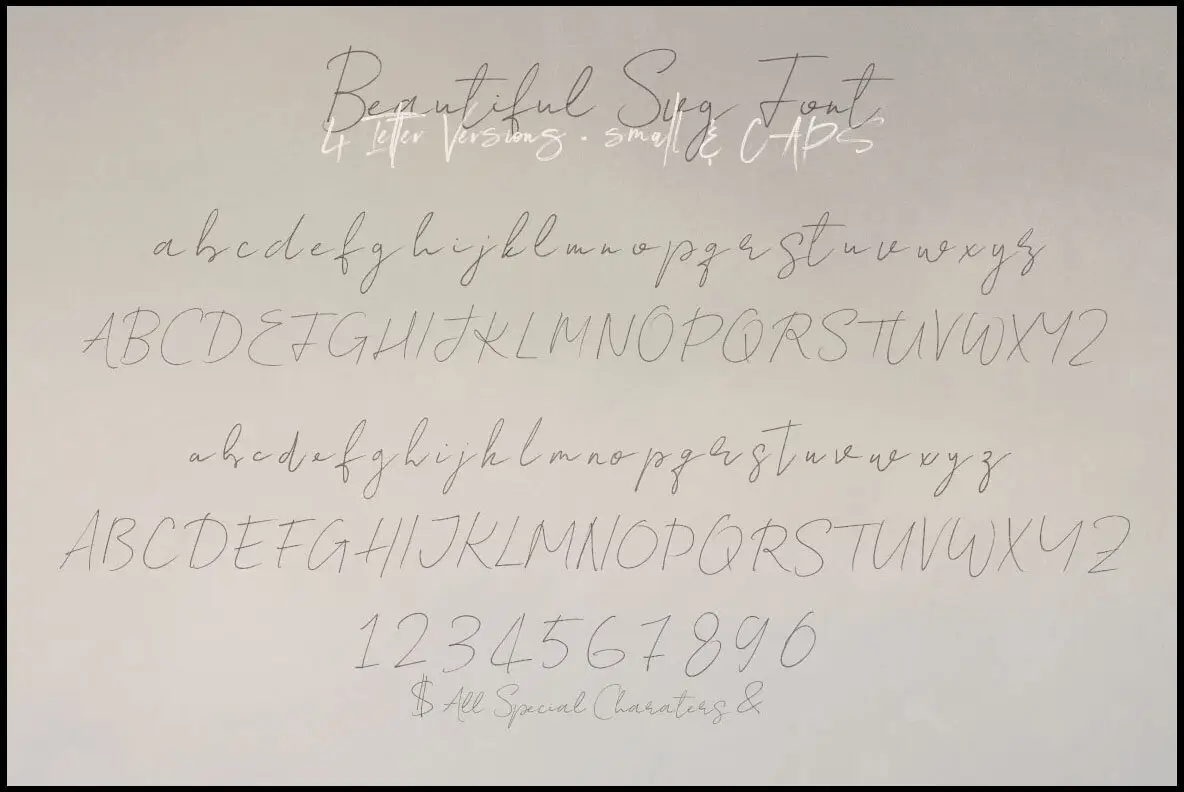 Beautiful Svg Font
4 letter Versions • small & CAPS
abcdefghijklmnopqrstuvwxyz
ABCDEFGHIJKLMNOPQRSTUVWXYZ
abcdefghijklmnopqrstuvwxyz
ABCDEFGHIJKLMNOPQRSTUVWXYZ
1234567890
$ All Special Charaters &